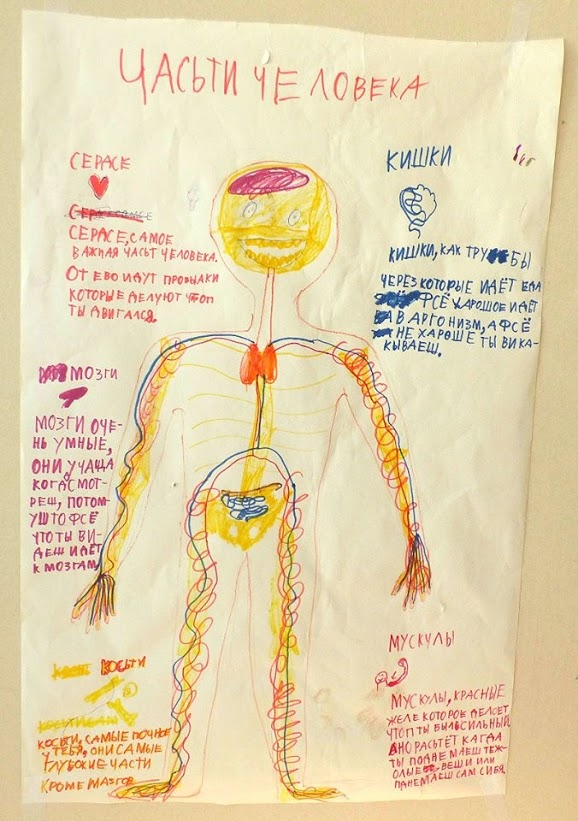 ЧАСЬТИ ЧЕЛОВЕКА
СЕРАСЕ
СЕРАСЕ, САМОЕ
ВАЖНАЯ ЧАСЬТ ЧЕЛОВЕКА.
ОТ ЕВО ИДУТ ПРОВЫДКИ
КОТОРЫЕ ДЕЛУЮТ ЧТОП
ТЫ ДВИГАЛСЯ.
КИШКИ
КИШКИ, КАК ТРУБЫ
ЧЕРЕЗ КОТОРЫЕ ИДЁТ ЕДА
ФСЁ ХАРОШОЕ ИДЁТ
В АРГОНИЗМ, А ФСЁ
НЕ ХАРОШЕ ТЫ ВИКА-
КЫВАЕШ.
МОЗГИ
МОЗГИ ОЧЕ-
НЬ УМНЫЕ,
ОНИ УЧАЦА
КОГДА СМОТ-
РЕШ, ПОТОМ-
УШТО ФСЁ
ЧТО ТЫ ВИ-
ДЕШ ИДЁТ
К МОЗГАМ
КОСЬТИ
КОСЬТИ, САМЫЕ ПОЧНОЕ
У ТЕБЯ, ОНИ САМЫЕ
ГЛУБОКИЕ ЧАСТИ
КРОМЕ МАЗГОВ
МУСКУЛЫ
МУСКУЛЫ, КРАСНЫЕ
ЖЕЛЕ КОТОРОЕ ДЕЛОЕТ
ЧТОП ТЫ БЫЛ СИЛЬНЫЙ
АНО РАСЬТЁТ КАГДА
ТЫ ПОДНЕМАЕШ ТЕЖ-
ОЛЫЕ ВЕШИ ИЛИ
ПАНЕМАЕШ САМ СИБЯ.